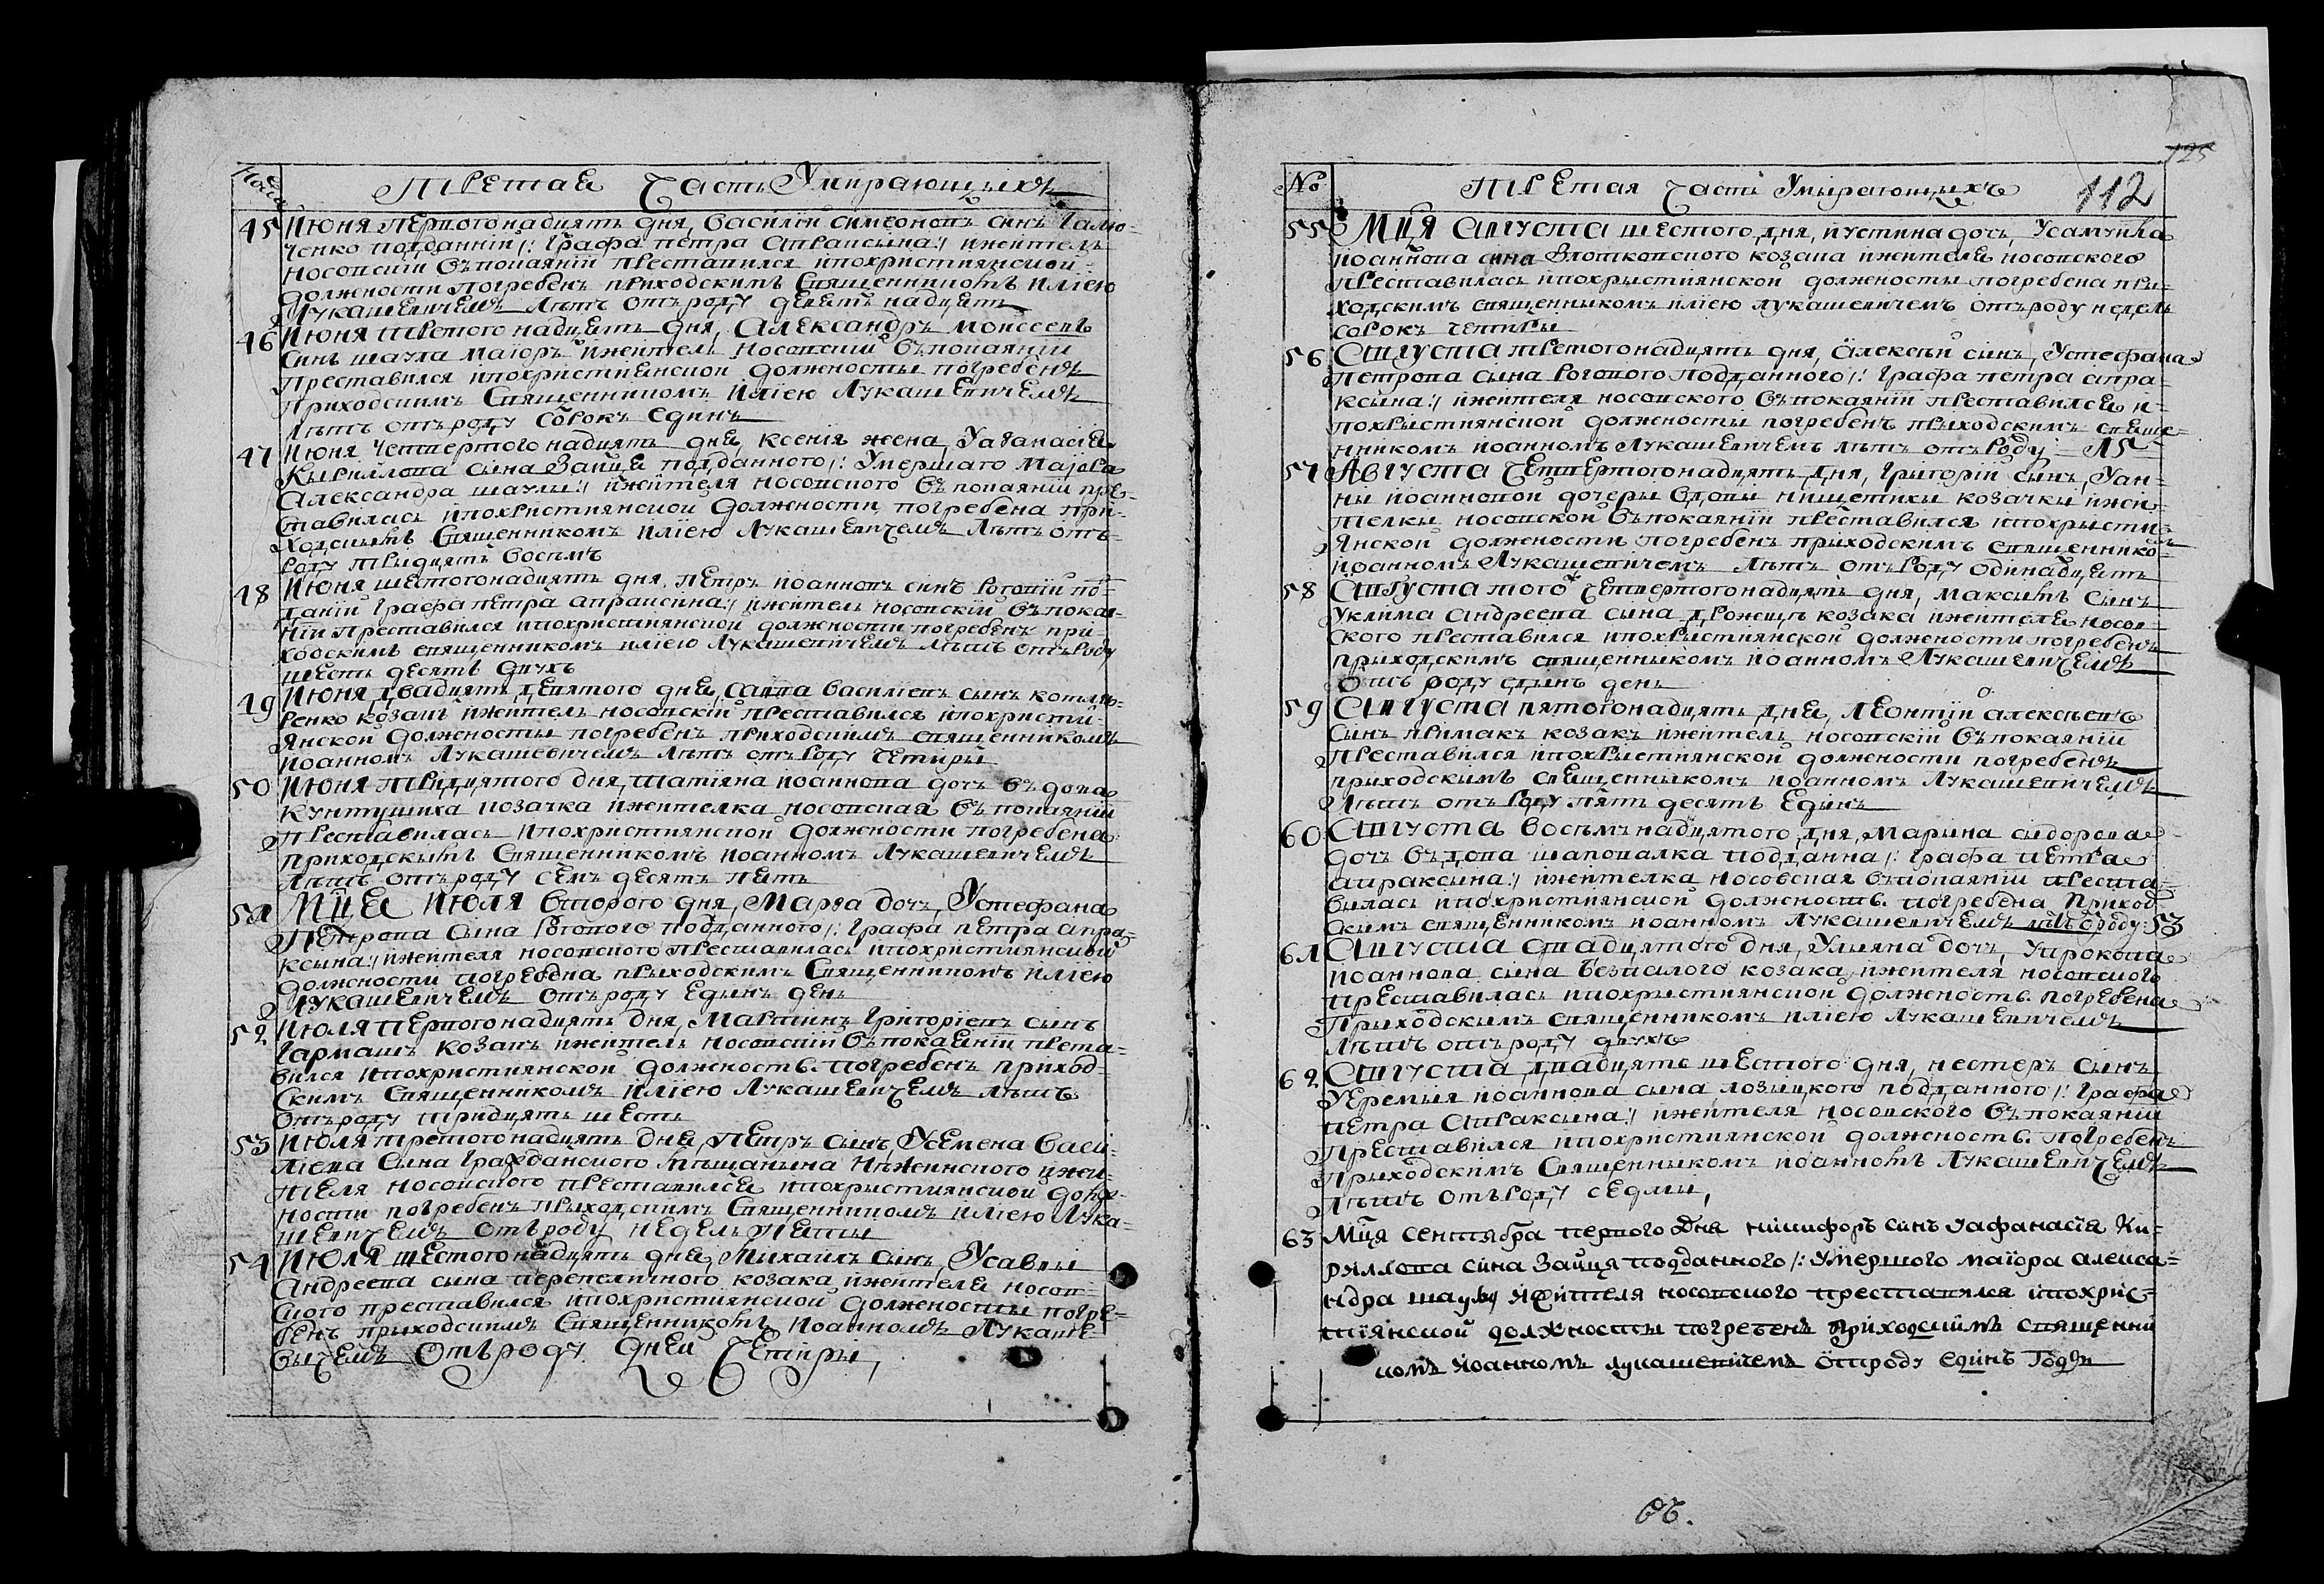 Третая Часть Умирающыхъ
45 Июня первогонадцять дня, Василій Симеоновъ синъ Галю-
ченко подданній /: Графа Петра Апраксына :/ ижитель
Носовскій въ покаяніи преставился и по християнской
должности погребенъ приходскимъ Священникомъ Иліею
Лукашевичемъ лѣтъ отъ роду деветь надцеть
46 Июня третогонадцеть дня, Александръ Моисеевъ
синъ Шаула Маіоръ ижитель Носовскій въ покаяніи
преставился и по християнской должносты погребенъ
приходскимъ Священникомъ Иліею Лукашевичемъ
лѣтъ отъ роду сорокъ единъ
47 Июня четвертогонадцять дня, Ксенія жена, Уафанасія
Кырилова сына Зайця подданного /: Умершаго Маіора
Александра Шаулы :/ ижителя Носовского въ покаяніи пре-
ставилась и по християнской должности погребена при-
ходскимъ Священникомъ Иліею Лукашевичемъ лѣтъ отъ
роду тридцять восемъ
48 Июня шестогонадцять дня, Петръ Иоанновъ синъ Роговій по-
даній Графа Петра Апраксина :/ ижитель Носовскій въ покая-
ніи преставился и по християнской должности погребенъ при-
ходскимъ священникомъ Иліею Лукашевичемъ лѣтъ отъ роду
шесть десять двухъ
49 Июня двадцять девятого дня, Савва Василіевъ сынъ Котля-
ренко козакъ ижитель Носовскій преставился и по христи-
янской должносты погребенъ приходскимъ священникомъ
Иоанномъ Лукашевичемъ лѣтъ отъ роду четири
50 Июня тридцятого дня, Татіяна Иоаннова дочъ въдова
Кунтушиха козачка ижителка Носовская въ покаяніи
преставилась и по християнской должности погребена
приходскымъ Священникомъ Иоанномъ Лукашевичемъ
лѣтъ отъ роду семъ десять петь
51 Мця Июля второго дня, Марфа дочъ, Устефана
Петрова сына Рогового подданного /: Графа Петра Апра-
ксына :/ ижителя Носовского преставилась и по християнской
должности погребена приходскимъ Священникомъ Иліею
Лукашевичемъ отъ роду едынъ день
52 Июля первогонадцять дня, Мартинъ Григоріевъ сынъ
Гармашъ козакъ ижитель Носовскій въ покаяніи преста-
вился и по християнской должность. погребенъ приход-
скимъ Священникомъ Иліею Лукашевичемъ лѣтъ
отъ роду тридцять шесть
53 Июля третогонадцять дня, Петръ сынъ, Усемена Васи-
ліева сына Гражданского мѣщанына Нѣжинского ижи-
теля Носовского преставился и по християнской долж-
ности погребенъ приходскимъ Священникомъ Иліею Лука-
шевичемъ отъ роду недель петы
54 Июля шестогонадцять дня, Михаилъ сынъ, Усавы
Андреева сына Перепелычного козака ижителя Носов-
ского преставился и по християнской должносты погре-
бенъ приходскимъ Священникомъ Иоанномъ Лукаше-
вычемъ отъ роду дней четыри,
125
№ Третая Часть Умырающыхъ 112
55 Мця Августа шестого дня, Иустина дочъ, Усамуила
Иоаннова сина козака ижителя Носовского
преставилась и по християнской должносты погребена при-
ходскимъ священныкомъ Иліею Лукашевичемъ отъ роду недель
сорокъ четыри
56 Августа третогонадцять дня, Алексѣй сынъ, Устефана
Петрова сына Рогового подданного /: Графа Петра Апра-
ксына :/ ижителя Носовского въ покаяніи преставился и
по християнской должносты погребенъ приходскимъ свяще-
нникомъ Иоанномъ Лукашевичемъ лѣтъ отъ роду 15
57 Августа четвертогонадцять дня, Григорій сынъ, Уан-
ны Иоанновой дочеры вдовы Нищетихи козачкы ижи-
телкы Носовской въ покаяніи преставился и по христи-
янской должности погребенъ приходскимъ священнико-
Иоанномъ Лукашевичемъ лѣтъ отъ роду одинадцеть
58 Августа того четвертогонадцять дня, Максымъ сынъ
Уклима Андреева сына козака ижителя Носов-
ского преставился и по християнской должности погребенъ
приходскимъ священныкомъ Иоанномъ Лукашевичемъ
отъ роду едынъ день
59 Августа пятогонадцять дня, Леонтій Алексѣевъ
сынъ Примакъ козакъ ижитель Носовскій въ покаяніи
преставился и по християнской должности погребенъ
приходскимъ священныкомъ Иоанномъ Лукашевичемъ
лѣтъ отъ роду пять десять единъ
60 Августа восемънадцятого дня, Марина Сидорова
дочъ въдова Шаповалка подданна /: Графа Петра
Апраксына :/ ижителка Носовская въ покаяніи преста-
вылась и по християнской должность. погребена приход-
скимъ священникомъ Иоанномъ Лукашевичемъ лѣтъ ороду: 53
61 Августа двадцятого дня, Уляна дочъ, Упрокопа
Иоаннова сина Безпалого козака ижителя Носовского
преставилась и по християнской должность. погребена
приходскимъ священникомъ Иліею Лукашевичемъ
лѣтъ отъ роду двухъ
62 Августа двадцять шестого дня, Нестеръ сынъ
Уеремыя Иоаннова сына Лозыцкого подданного /: Графа
Петра Апраксына :/ ижителя Носовского въ покаяніи
преставился и по християнской должность. погребенъ
приходскимъ Священныкомъ Иоанномъ Лукашевичемъ
лѣтъ отъ роду седми,
63 Мця Сентября первого дня Никифоръ синъ Уафанасія Ки-
риллова сина Зайця подданного /: Умершого маіора Алекса-
ндра Шаулы ижителя Носовского преставился и по хрис-
тіянской должносты погребенъ приходскимъ священни
комъ Иоанномъ Лукашевичемъ отроду единъ годъ